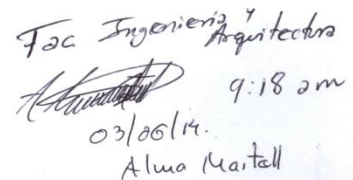 Fac Ingenieria y
Arquitectura
9:18 am
03/06/14.
Alma